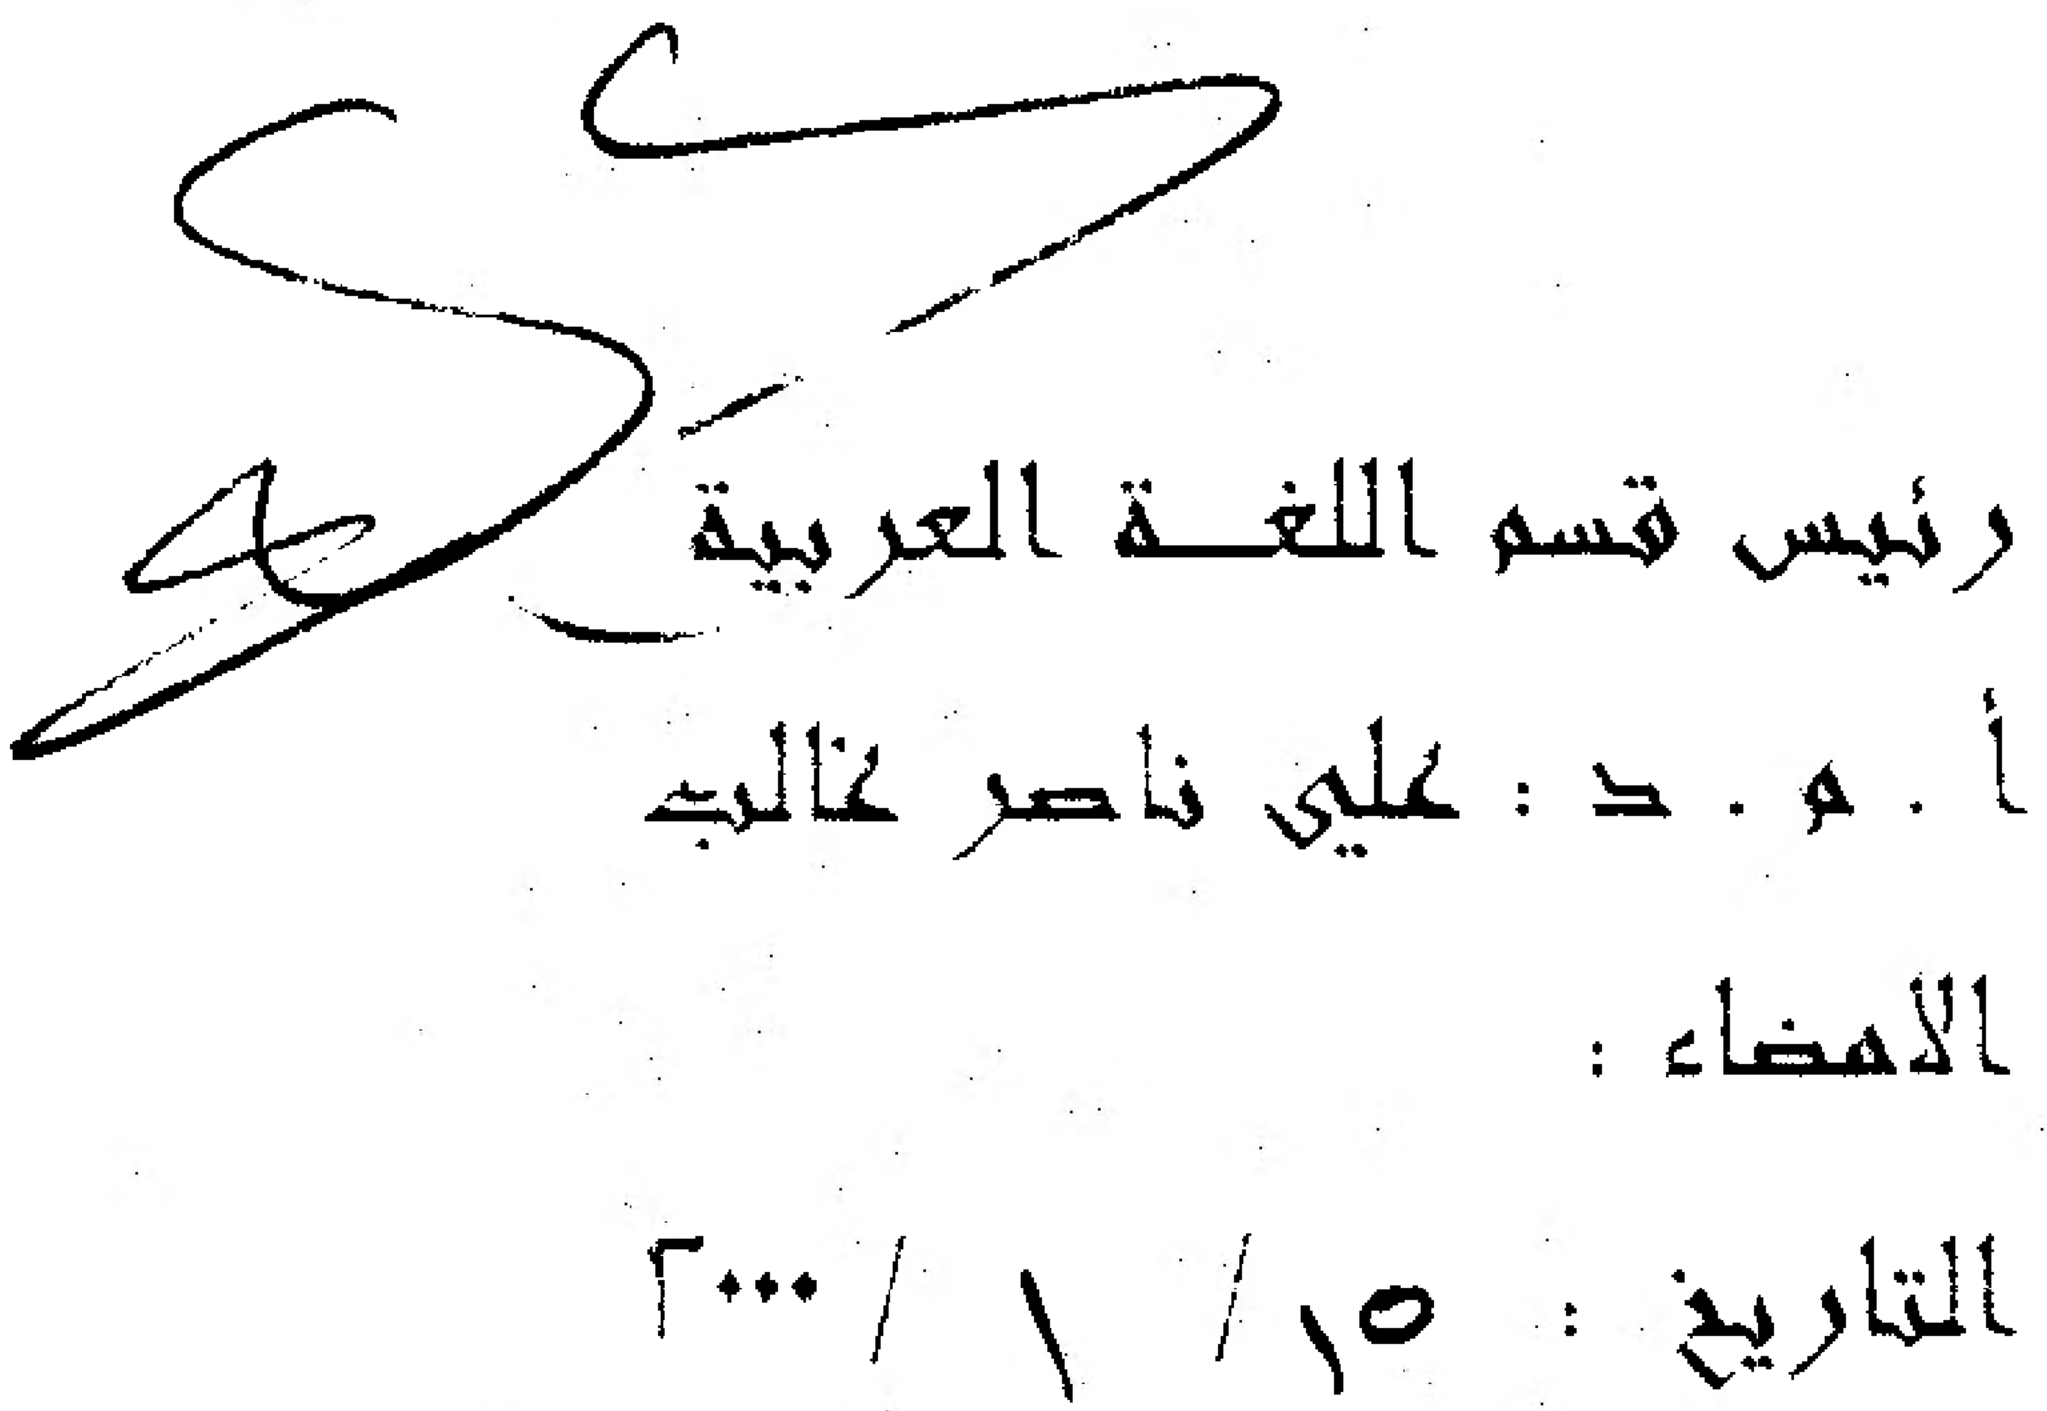 رئيس قسم اللغة العربية
أ . م . د : علي ناصر غالب
الامضاء :
التاريخ : ١٥ / ١ / ٢٠٠٠